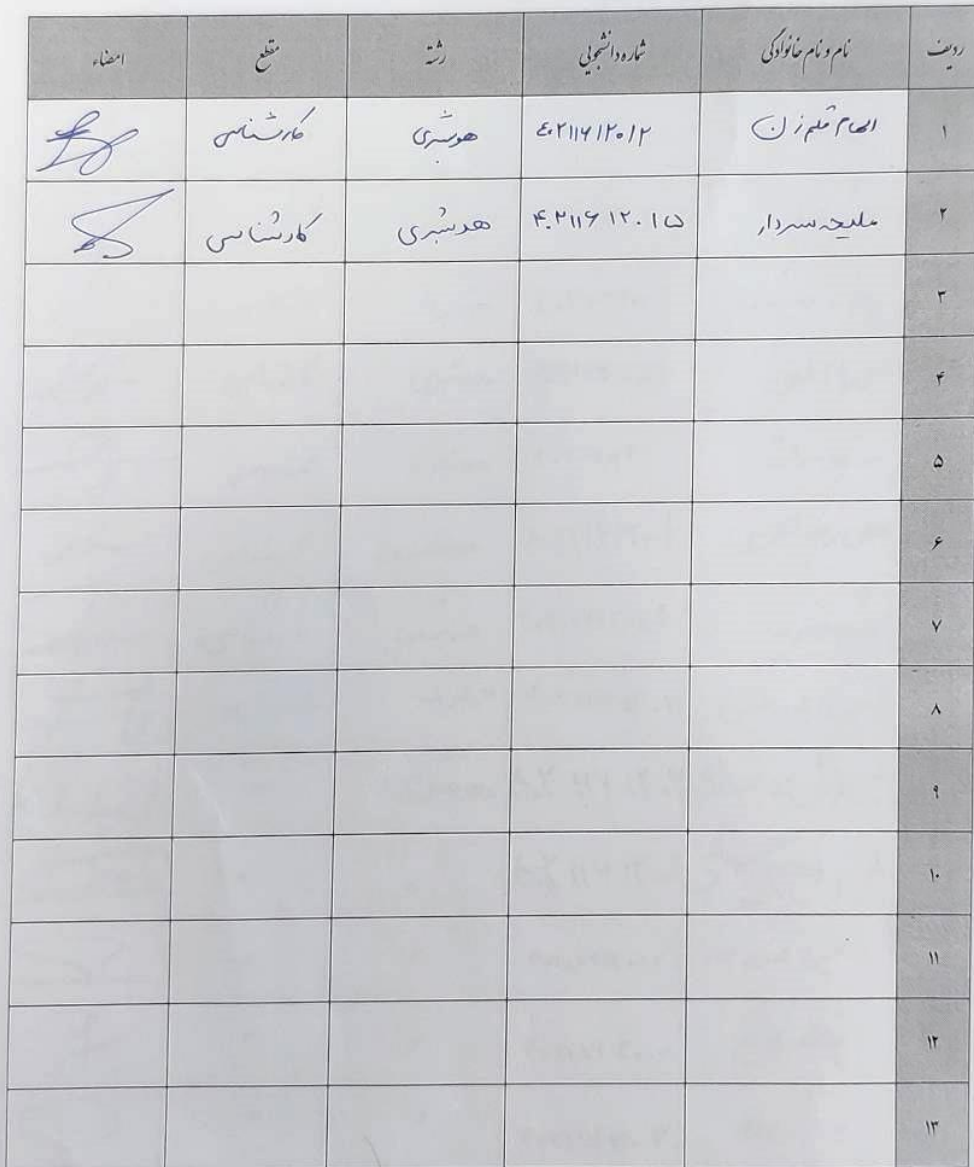 ردیف نام و نام خانوادگی شماره دانشجویی رشته مقطع امضاء
۱ الهام قلم زن ٤۰۲۱۱۶۱۲۰۱۲ هوشبری کارشناسی
۲ ملیحه سردار ۴۰۲۱۱۶۱۲۰۱۵ هوشبری کارشناسی
۳
۴
۵
۶
۷
۸
۹
۱۰
۱۱
۱۲
۱۳